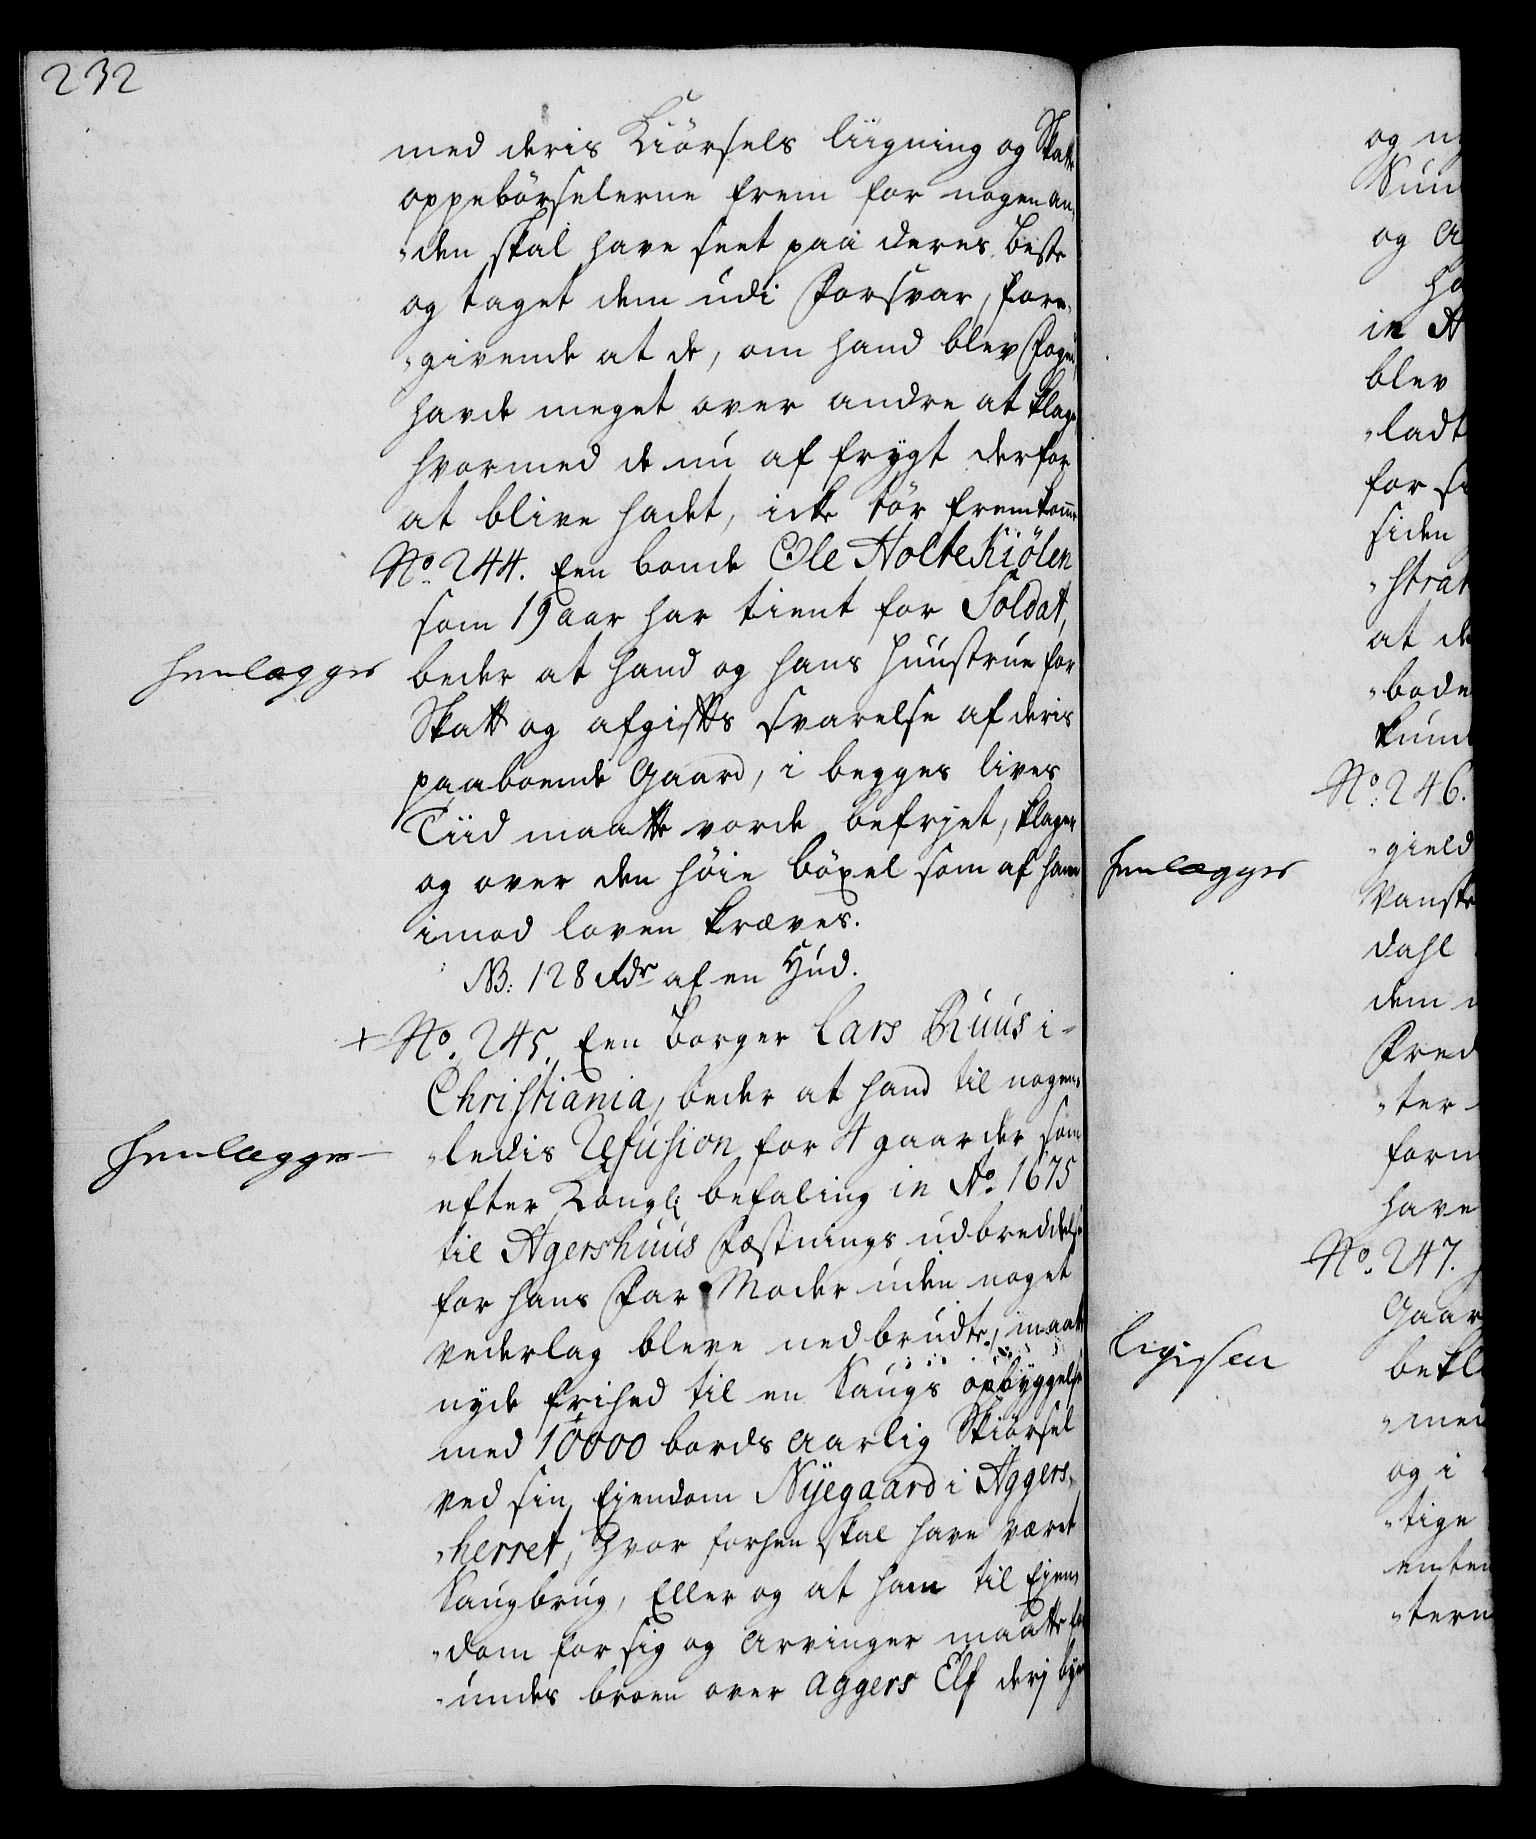 232
med deris Kiörsels liigning og Skatte
oppebörselerne frem for nogen an¬
„den skal have seet paa deres beste
og taget dem udi Forsvar, fore¬
„givende at de, om hand blev Foget,
havde meget over andre at klage
hvormed de nu af frygt derfor
at blive hadet, icke tör fremkomme
No. 244. Een bonde Ole HolteKiölen
som 19 aar har tient for Soldat,
henlægges
beder at hand og hans Huustrue for
Skatt og afgiftts svarelse af deris
paaboende Gaard, i begges lives
Tiid maatte vorde befrjet, klager
og over den höie böxel som af ham
imod loven kræves.
NB: 128 Rdr af en Hud.
+ No. 245. Een borger Lars Ruus i
Christiania, beder at hand til nogen¬
henlægges
„ledis Refusion for 4 gaarder som
efter Kongl: befaling in Ao. 1675
til Agershuus Fæstnings udbreddelse
for hans Far Moder uden noget
vederlag bleve nedbrudte, maatte
nyde frihed til en Saugs opbyggelse
med 10000 bords Aarlig Skiörsel
ved sin Eiendom Nyegaard i Aggers¬
„herret, hvor forhen skal have været
Saugbrug, Eller og at ham til Eien¬
„dom for sig og Arvinger maatte for
„undes broen over Aggers Elf derj byen
og
og
in A
blev
„ladt
for
siden
„strat
at de
„bode
No. 246.
„gield
henlægges
Vanske
dahl
dem
Fred
„ter
form
have
No. 247.
Gaar
ligesaa
bekl
„med
og i
„tige
„tern